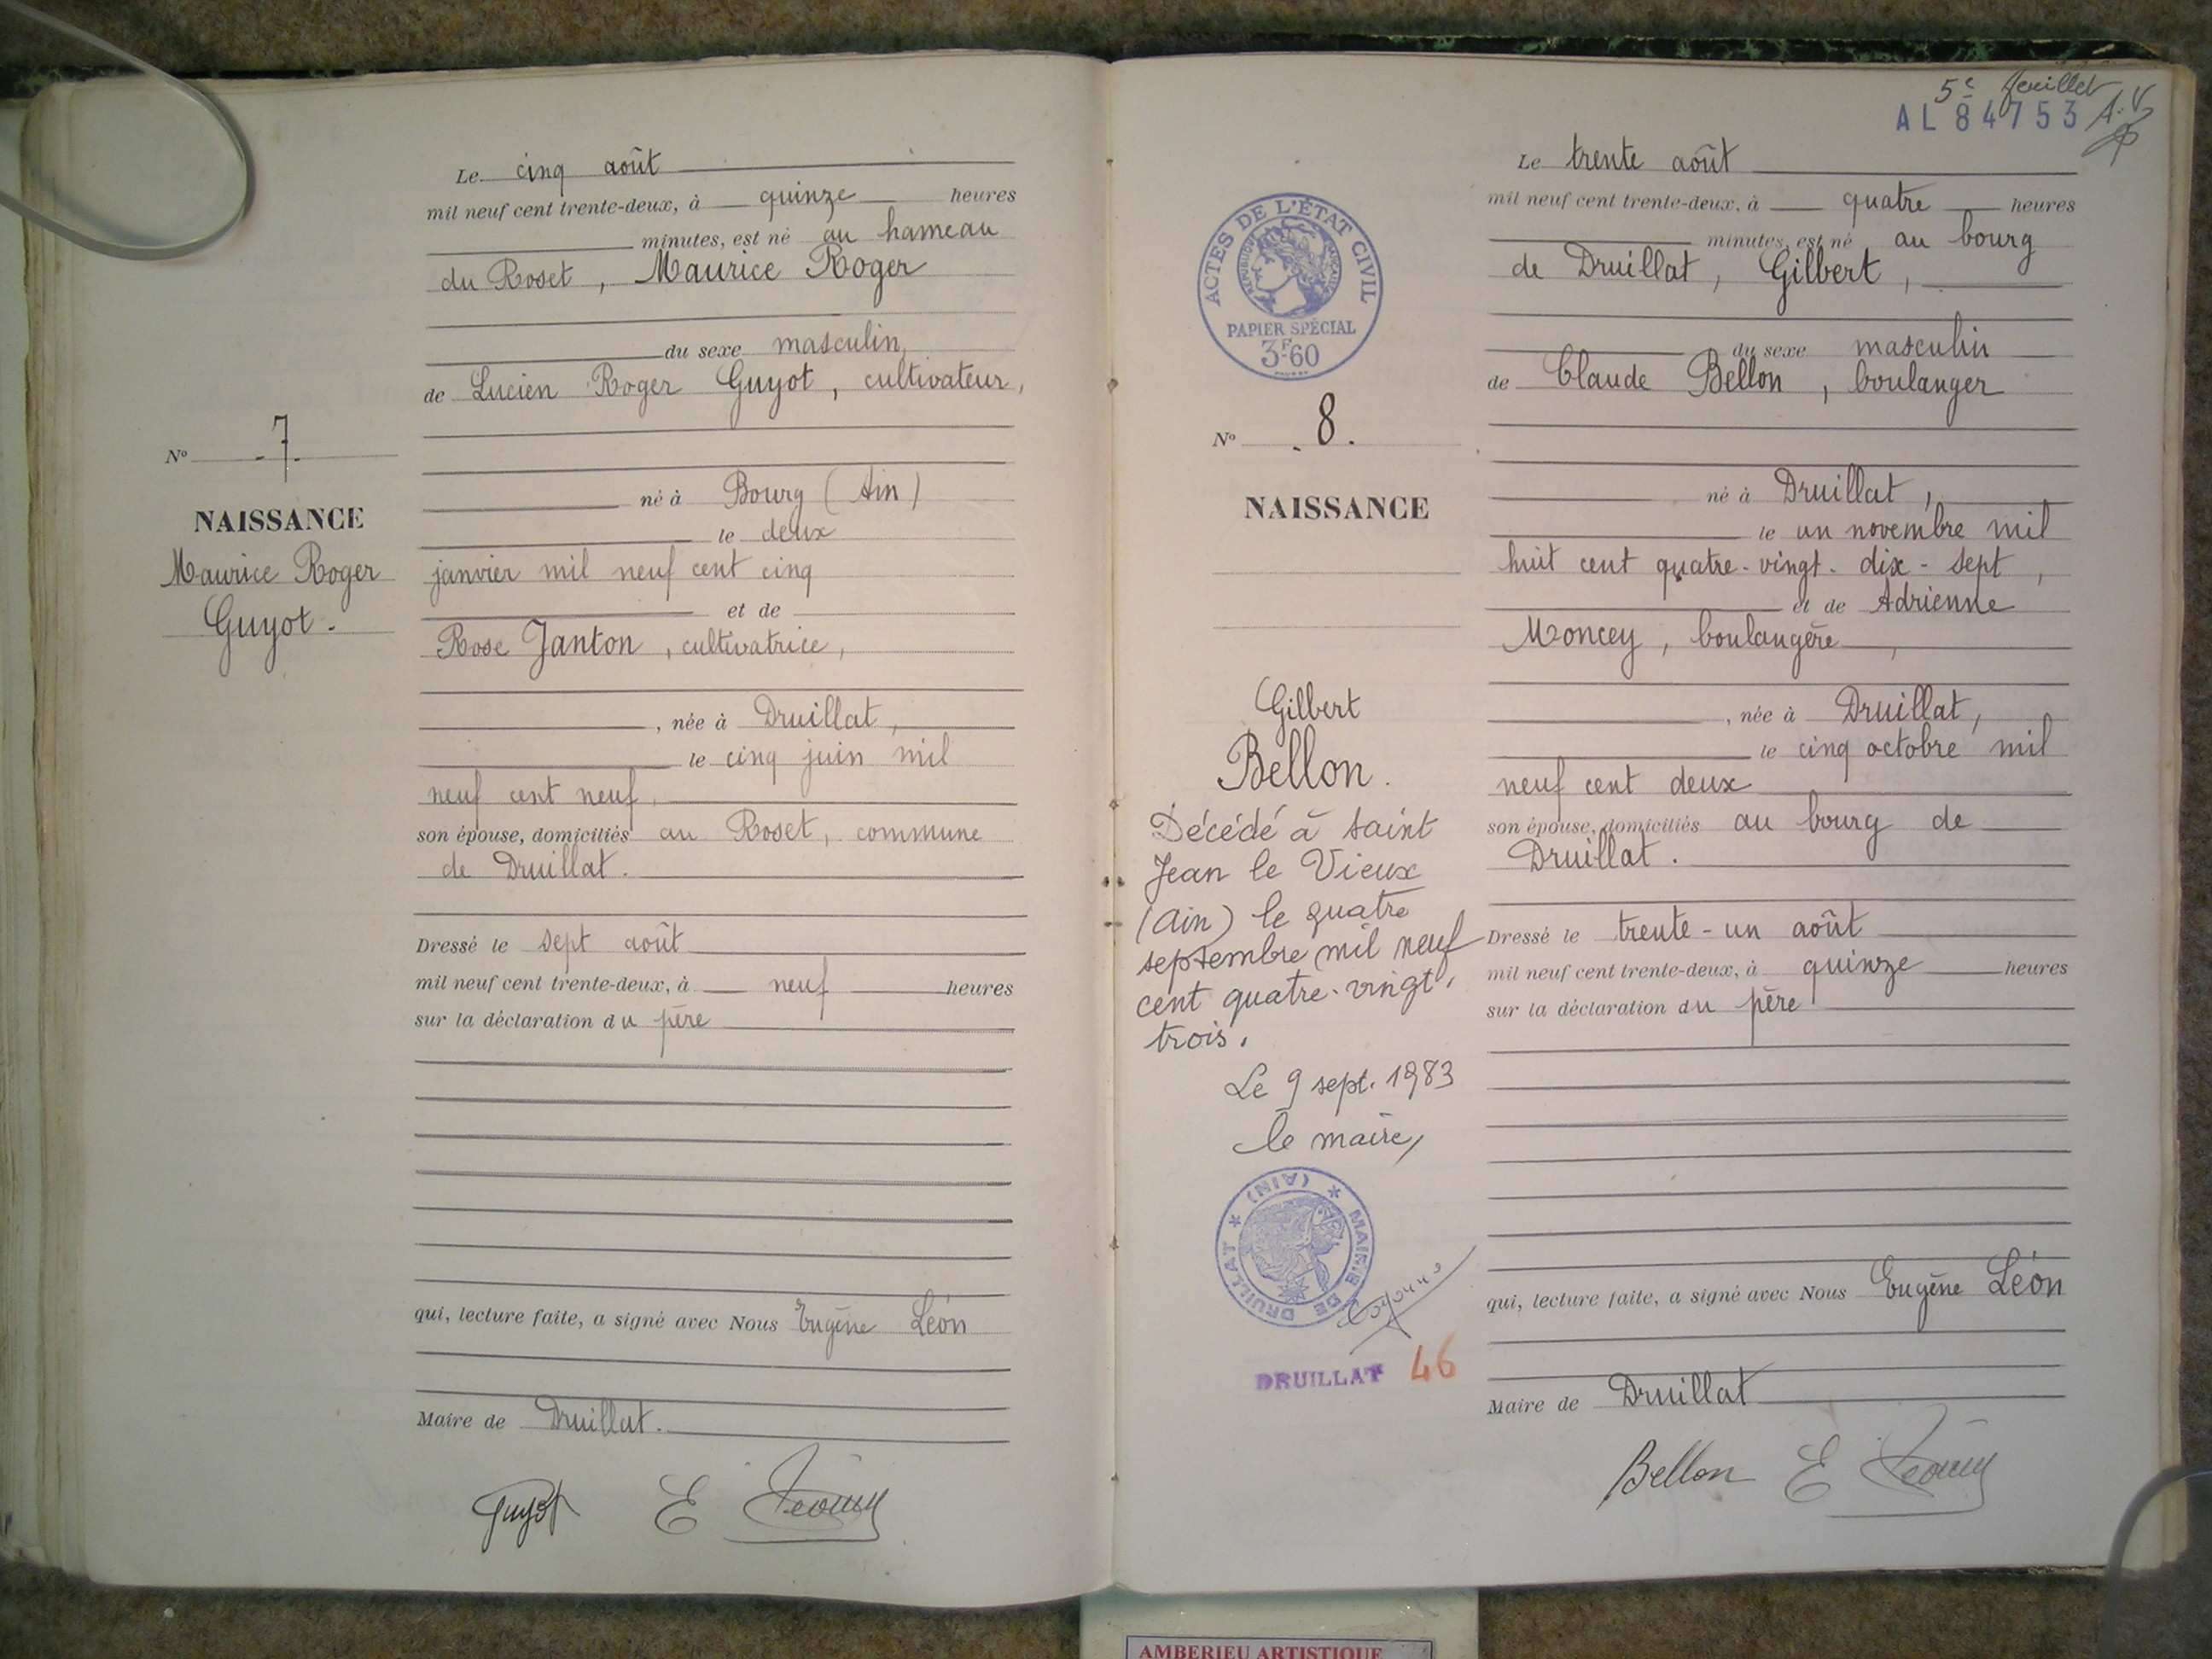 Le cinq août
mil neuf cent trente-deux, à quinze heures
minutes, est né au hameau
du Roset, Maurice Roger
du sexe masculin
de Lucien Roger Guyot, cultivateur,
N° 7.
né à Bourg (Ain)
NAISSANCE
le deux
Maurice Roger
Guyot.
janvier mil neuf cent cinq
et de
Rose Janton, cultivatrice,
, née à Druillat,
le cinq juin mil
neuf cent neuf,
son épouse, domiciliés au Roset, commune
de Druillat.
Dressé le sept août
mil neuf cent trente-deux, à neuf heures
sur la déclaration du père
qui, lecture faite, a signé avec Nous Eugène Léon
Maire de Druillat.
Guyot E
5e feuillet
AL 84753
ACTES DE L'ÉTAT CIVIL
RÉPUBLIQUE FRANÇAISE
PAPIER SPÉCIAL
3F60
N° 8.
NAISSANCE
Gilbert
Bellon.
Décédé à Saint
Jean le Vieux
(Ain) le quatre
septembre mil neuf
cent quatre-vingt-
trois.
Le 9 sept. 1983
le maire,
MAIRIE DE DRUILLAT * (AIN) *
DRUILLAT 46
Le trente août
mil neuf cent trente-deux, à quatre heures
minutes, est né au bourg
de Druillat, Gilbert,
du sexe masculin
de Claude Bellon, boulanger
né à Druillat,
le un novembre mil
huit cent quatre-vingt-dix-sept,
et de Adrienne
Moncey, boulangère,
, née à Druillat,
le cinq octobre mil
neuf cent deux
son épouse, domiciliés au bourg de
Druillat.
Dressé le trente-un août
mil neuf cent trente-deux, à quinze heures
sur la déclaration du père
qui, lecture faite, a signé avec Nous Eugène Léon
Maire de Druillat
Bellon E
AMBERIEU ARTISTIQUE